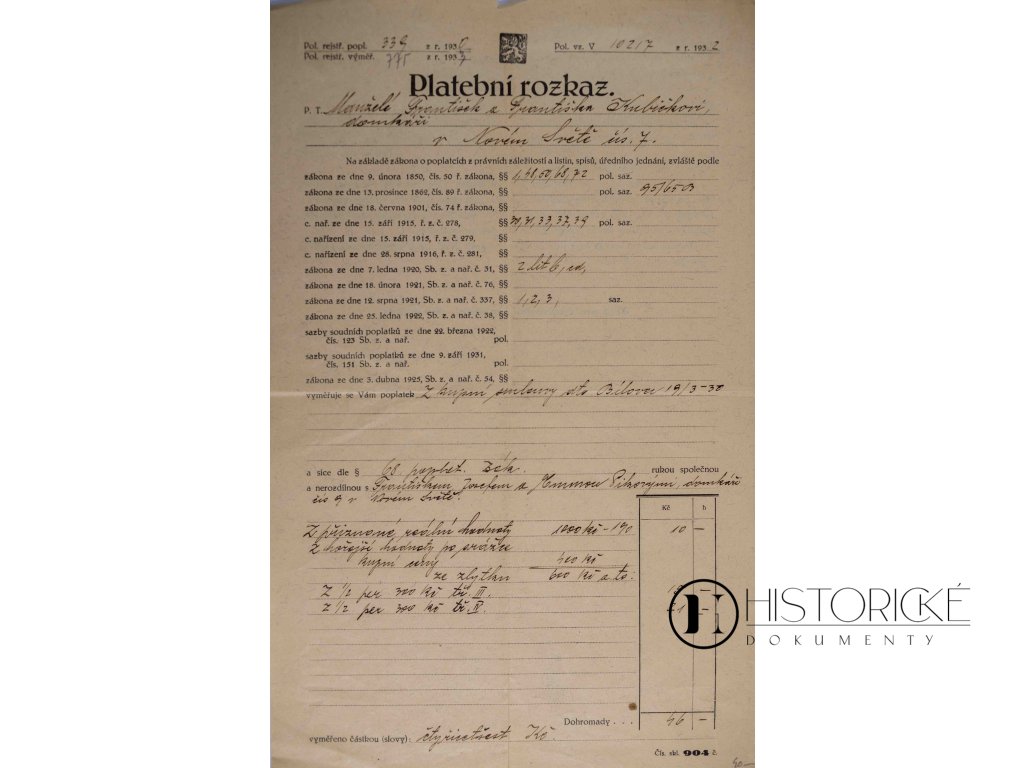 Pol. rejstř. popl. 339 z r. 1930
Pol. vz. V 10217 z r. 1932
Pol. rejstř. výměř. 775 z r. 193
Platební rozkaz.
P. T. Manželé František a Františka Kubíčkovi,
domkáři
v Novém Světě čís. 7.
Na základě zákona o poplatcích z právních záležitostí a listin, spisů, úředního jednání, zvláště podle
zákona ze dne 9. února 1850, čís. 50 ř. zákona, §§ 1,48,50,68,72 pol. saz.
zákona ze dne 13. prosince 1862, čís. 89 ř. zákona, §§ pol. saz. 95/65
zákona ze dne 18. června 1901, čís. 74 ř. zákona, §§
c. nař. ze dne 15. září 1915, ř. z. č. 278, §§ 31, 33, 37, 39 pol. saz.
c. nařízení ze dne 15. září 1915, ř. z. č. 279, §§
c. nařízení ze dne 28. srpna 1916, ř. z. č. 281, §§
zákona ze dne 7. ledna 1920, Sb. z. a nař. č. 31, §§ 2 lit b,
zákona ze dne 18. února 1921, Sb. z. a nař. č. 76, §§
zákona ze dne 12. srpna 1921, Sb. z. a nař. č. 337, §§ 1, 2, 3, saz.
zákona ze dne 25. ledna 1922, Sb. z. a nař. č. 38, §§
sazby soudních poplatků ze dne 22. března 1922,
čís. 123 Sb. z. a nař. pol.
sazby soudních poplatků ze dne 9. září 1931,
čís. 151 Sb. z. a nař. pol.
zákona ze dne 3. dubna 1925, Sb. z. a nař. č. 54, §§
vyměřuje se Vám poplatek z kupní smlouvy dto Bílovec 19/3-30
a sice dle § 68 zák. rukou společnou
a nerozdílnou s Františkem, Josefem a domkáři
čís 9 v Novém Světě.
Kč h
Z přiznané reální hodnoty 1000 Kč - 10 –
Z hořejší hodnoty po srážce
kupní ceny 400 Kč
ze zbytku 600 Kč a to:
z 1/2 per 300 Kč tř. III. –
z 1/2 per 300 Kč tř. –
HISTORICKÉ
DOKUMENTY
Dohromady . . . 46 –
vyměřeno částkou (slovy): čtyřicetšest Kč.
Čís. skl. 904 č.